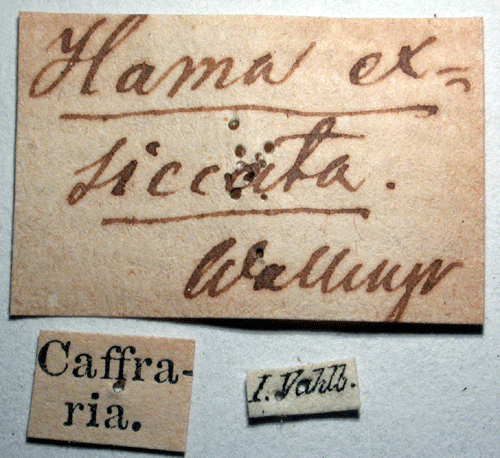 Hama ex-
siccata.
Wallengr
Caffra-
ria.
J. Vahlb.